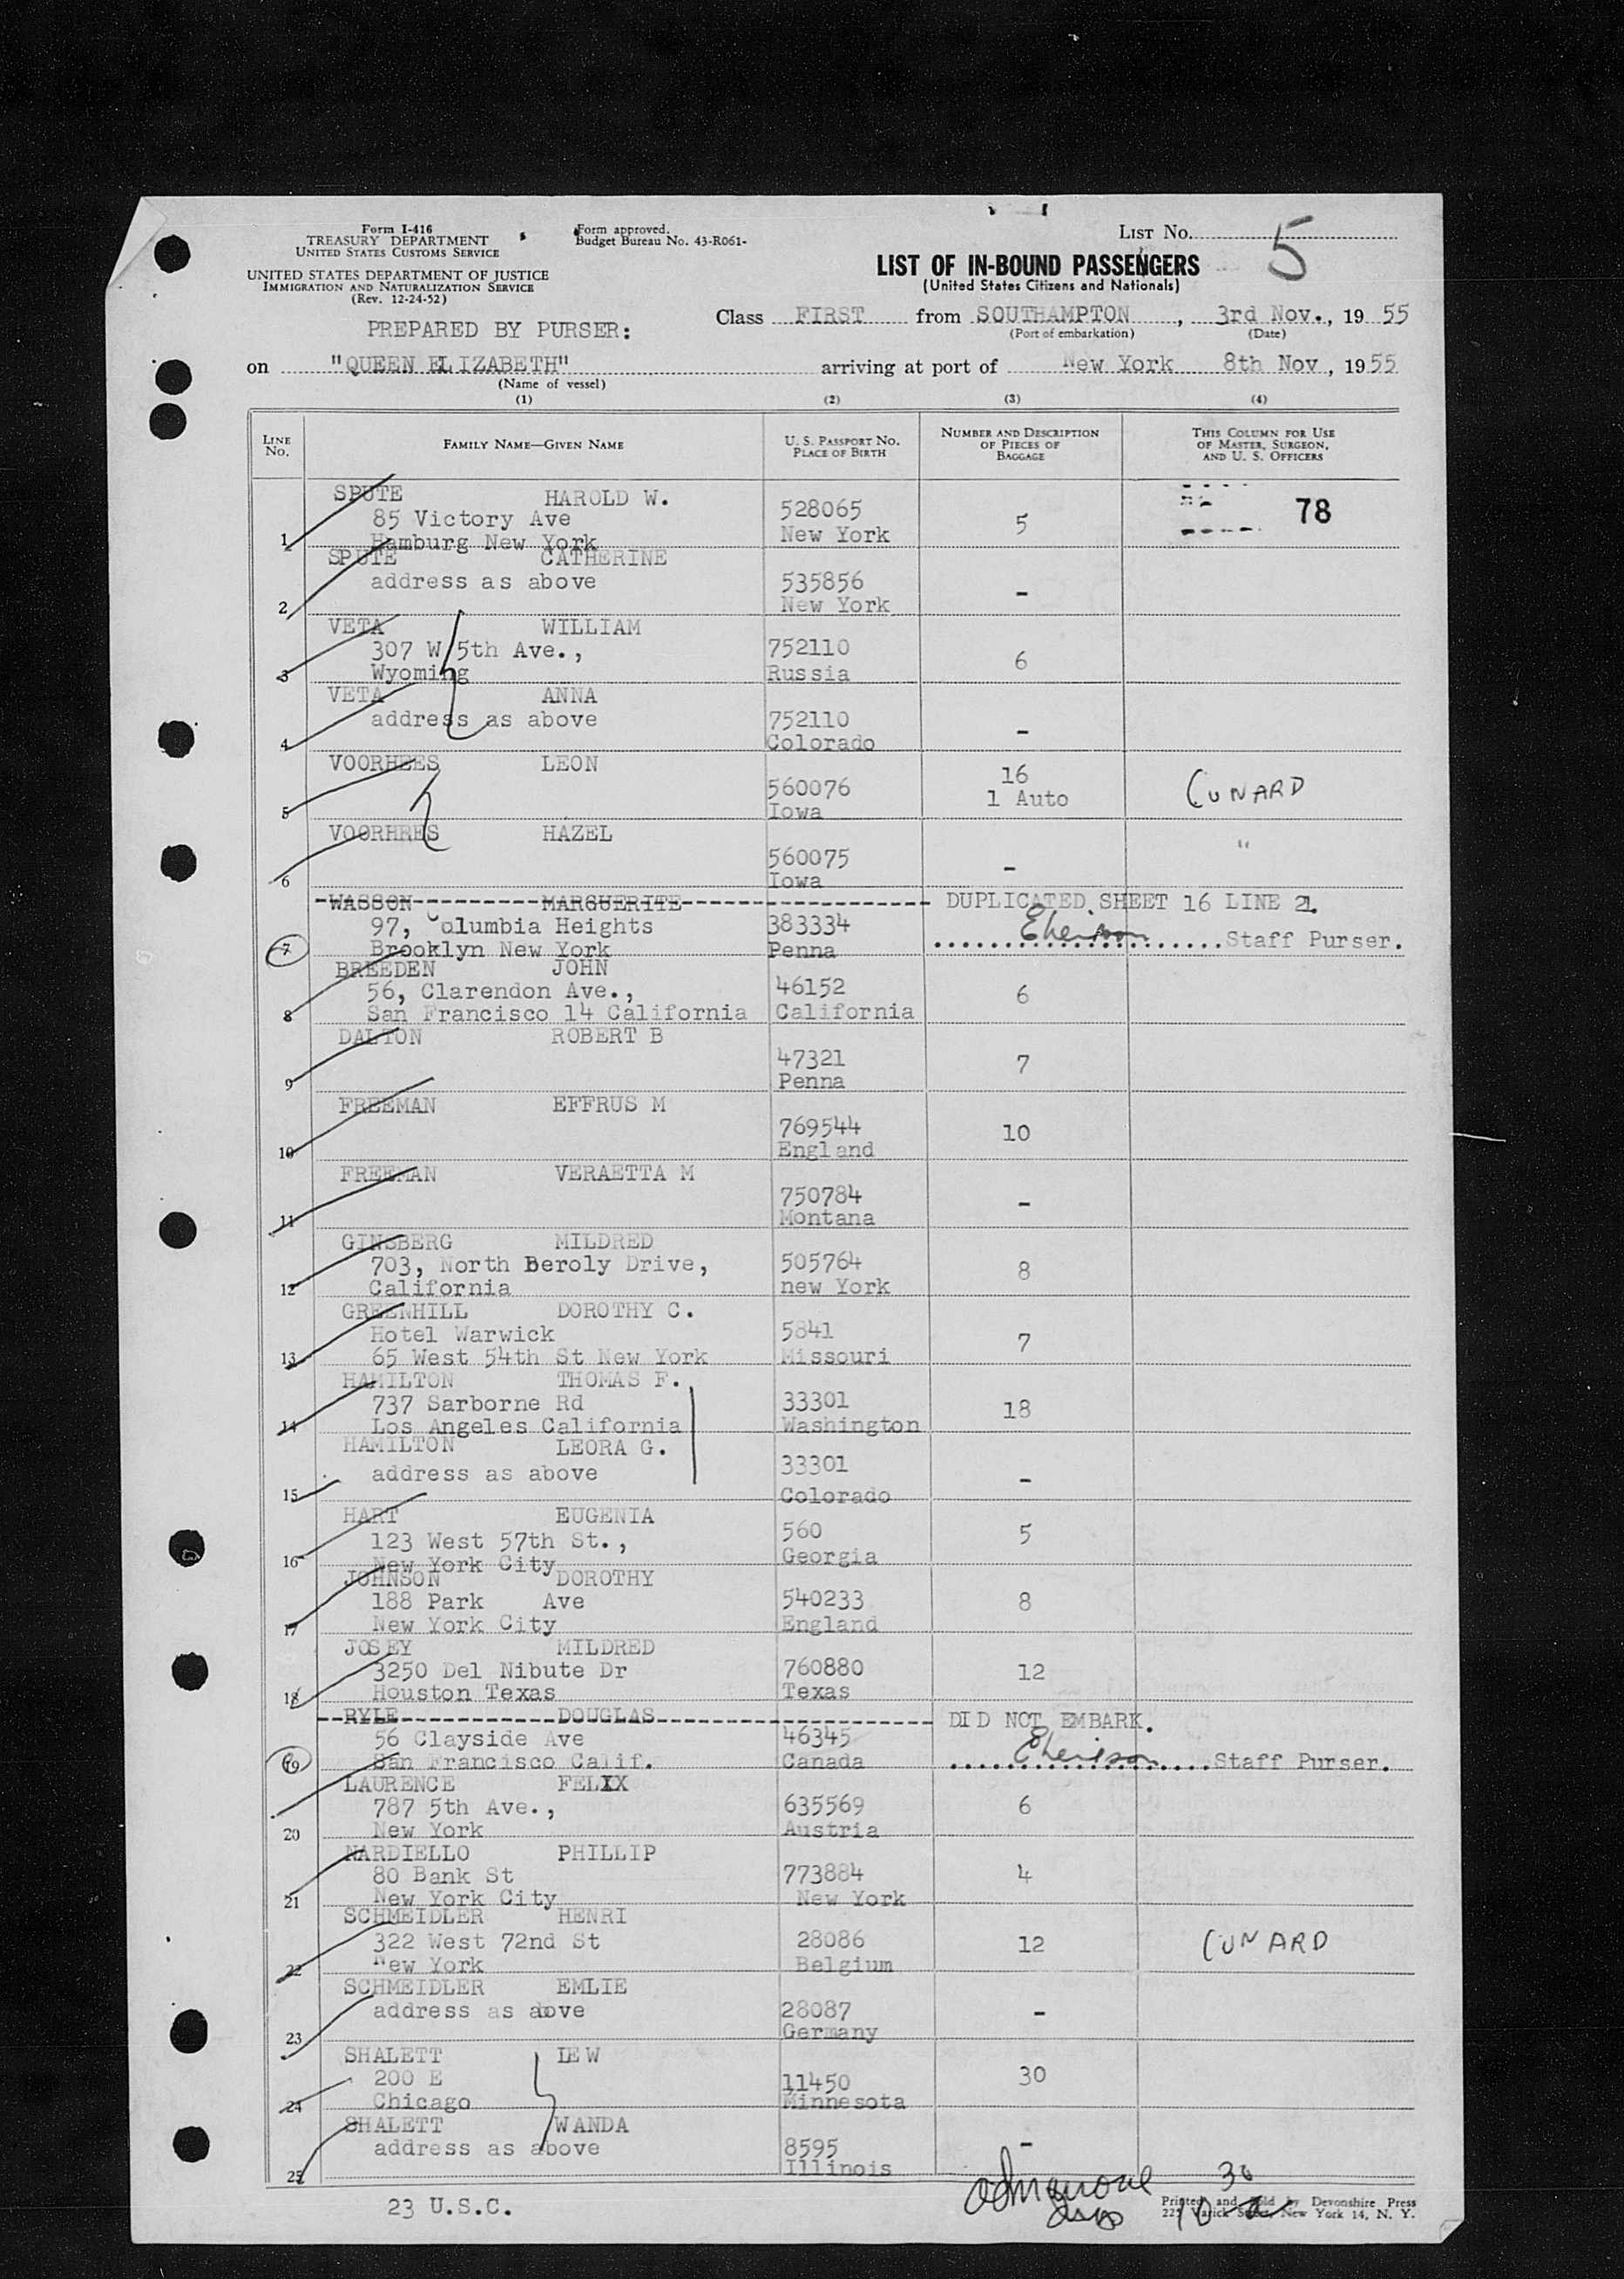 Form I-416
TREASURY DEPARTMENT
UNITED STATES CUSTOMS SERVICE
UNITED STATES DEPARTMENT OF JUSTICE
IMMIGRATION AND NATURALIZATION SERVICE
(Rev. 12-24-52)
Form approved.
Budget Bureau No. 43-R061-
LIST No. 5
LIST OF IN-BOUND PASSENGERS
(United States Citizens and Nationals)
PREPARED BY PURSER:
Class FIRST from SOUTHAMPTON, 3rd Nov., 19 55
(Port of embarkation) (Date)
on "QUEEN ELIZABETH" arriving at port of New York 8th Nov, 1955
(Name of vessel)
(1) (2) (3) (4)
LINE No. FAMILY NAME—GIVEN NAME U. S. PASSPORT NO. PLACE OF BIRTH NUMBER AND DESCRIPTION OF PIECES OF BAGGAGE THIS COLUMN FOR USE OF MASTER, SURGEON, AND U. S. OFFICERS
SPUTE HAROLD W. 78
85 Victory Ave 528065 5
1 Hamburg New York New York
SPUTE CATHERINE
address as above 535856 -
2 New York
VETA WILLIAM
307 W 5th Ave., 752110 6
3 Wyoming Russia
VETA ANNA
address as above 752110 -
4 Colorado
VOORHEES LEON 16
560076 1 Auto CUNARD
5 Iowa
VOORHRES HAZEL "
560075 -
6 Iowa
WASSON MARGUERITE DUPLICATED SHEET 16 LINE 21.
97, Columbia Heights 383334
7 Brooklyn New York Penna Staff Purser.
BREEDEN JOHN
56, Clarendon Ave., 46152 6
8 San Francisco 14 California California
DALTON ROBERT B
47321 7
9 Penna
FREEMAN EFFRUS M
769544 10
10 England
FREEMAN VERAETTA M
750784 -
11 Montana
GINSBERG MILDRED
703, North Beroly Drive, 505764 8
12 California new York
GREENHILL DOROTHY C.
Hotel Warwick 5841 7
13 65 West 54th St New York Missouri
HAMILTON THOMAS F.
737 Sarborne Rd 33301 18
14 Los Angeles California Washington
HAMILTON LEORA G.
address as above 33301 -
15 Colorado
HART EUGENIA
123 West 57th St., 560 5
16 New York City Georgia
JOHNSON DOROTHY
188 Park Ave 540233 8
17 New York City England
JOSEY MILDRED
3250 Del Nibute Dr 760880 12
18 Houston Texas Texas
RYLE DOUGLAS DID NOT EMBARK.
56 Clayside Ave 46345
19 San Francisco Calif. Canada Staff Purser.
LAURENCE FELIX
787 5th Ave., 635569 6
20 New York Austria
NARDIELLO PHILLIP
80 Bank St 773884 4
21 New York City New York
SCHMEIDLER HENRI
322 West 72nd St 28086 12 CUNARD
22 New York Belgium
SCHMEIDLER EMLIE
address as above 28087 -
23 Germany
SHALETT LEW
200 E 11450 30
24 Chicago Minnesota
SHALETT WANDA
address as above 8595 -
25 Illinois
23 U.S.C.
Printed and Sold by Devonshire Press
225 Varick Street, New York 14, N. Y.